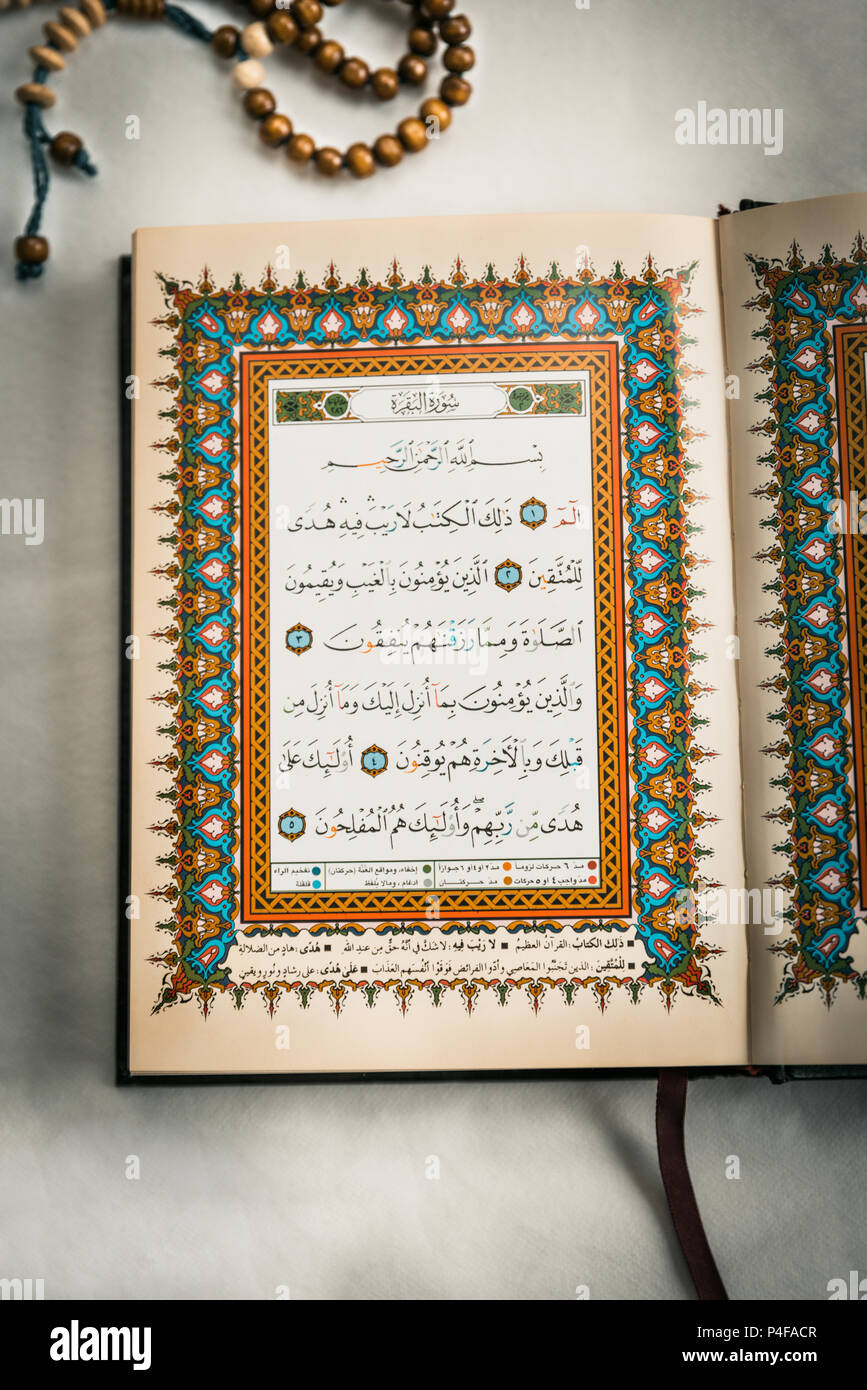 سُورَةُ البَقَرَةِ
بِسْمِ ٱللَّهِ ٱلرَّحْمَٰنِ ٱلرَّحِيمِ
الٓمٓ ١ ذَٰلِكَ ٱلْكِتَٰبُ لَا رَيْبَ ۛ فِيهِ ۛ هُدًى
لِّلْمُتَّقِينَ ٢ ٱلَّذِينَ يُؤْمِنُونَ بِٱلْغَيْبِ وَيُقِيمُونَ
ٱلصَّلَوٰةَ وَمِمَّا رَزَقْنَٰهُمْ يُنفِقُونَ ٣
وَٱلَّذِينَ يُؤْمِنُونَ بِمَآ أُنزِلَ إِلَيْكَ وَمَآ أُنزِلَ مِن
قَبْلِكَ وَبِٱلْأٓخِرَةِ هُمْ يُوقِنُونَ ٤ أُو۟لَٰٓئِكَ عَلَىٰ
هُدًى مِّن رَّبِّهِمْ ۖ وَأُو۟لَٰٓئِكَ هُمُ ٱلْمُفْلِحُونَ ٥
مدّ ٦ حركات لزوماً مدّ ٢ أو ٤ أو ٦ جوازاً إخفاء، ومواقع الغُنَّة (حركتان) تفخيم الراء
مدّ واجب ٤ أو ٥ حركات مدّ حركتان إدغام، ومالا يلفظ قلقلة
■ ذَلِكَ الكِتَابُ: القرآنُ العظيمُ ■ لَا رَيْبَ فِيهِ: لا شكَّ في أنَّهُ حقٌّ مِن عندِ الله ■ هُدًى: هادٍ من الضلالةِ
■ لِلْمُتَّقِينَ: الذين تَجَنَّبُوا المَعاصِيَ وأدّوا الفرائضَ فَوَقَوْا أنْفُسَهم العَذابَ ■ عَلَى هُدًى: على رشادٍ ونُورٍ ويقينٍ
alamy
Image ID: P4FACR
www.alamy.com